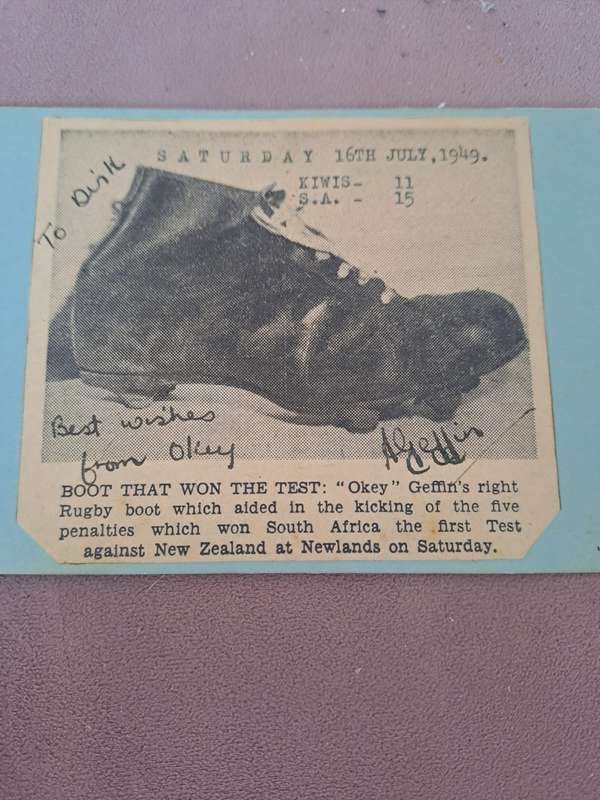 SATURDAY 16TH JULY, 1949.
KIWIS- 11
S.A. - 15
To Dirk
Best wishes
from Okey
AGeffin
BOOT THAT WON THE TEST: "Okey" Geffin's right
Rugby boot which aided in the kicking of the five
penalties which won South Africa the first Test
against New Zealand at Newlands on Saturday.